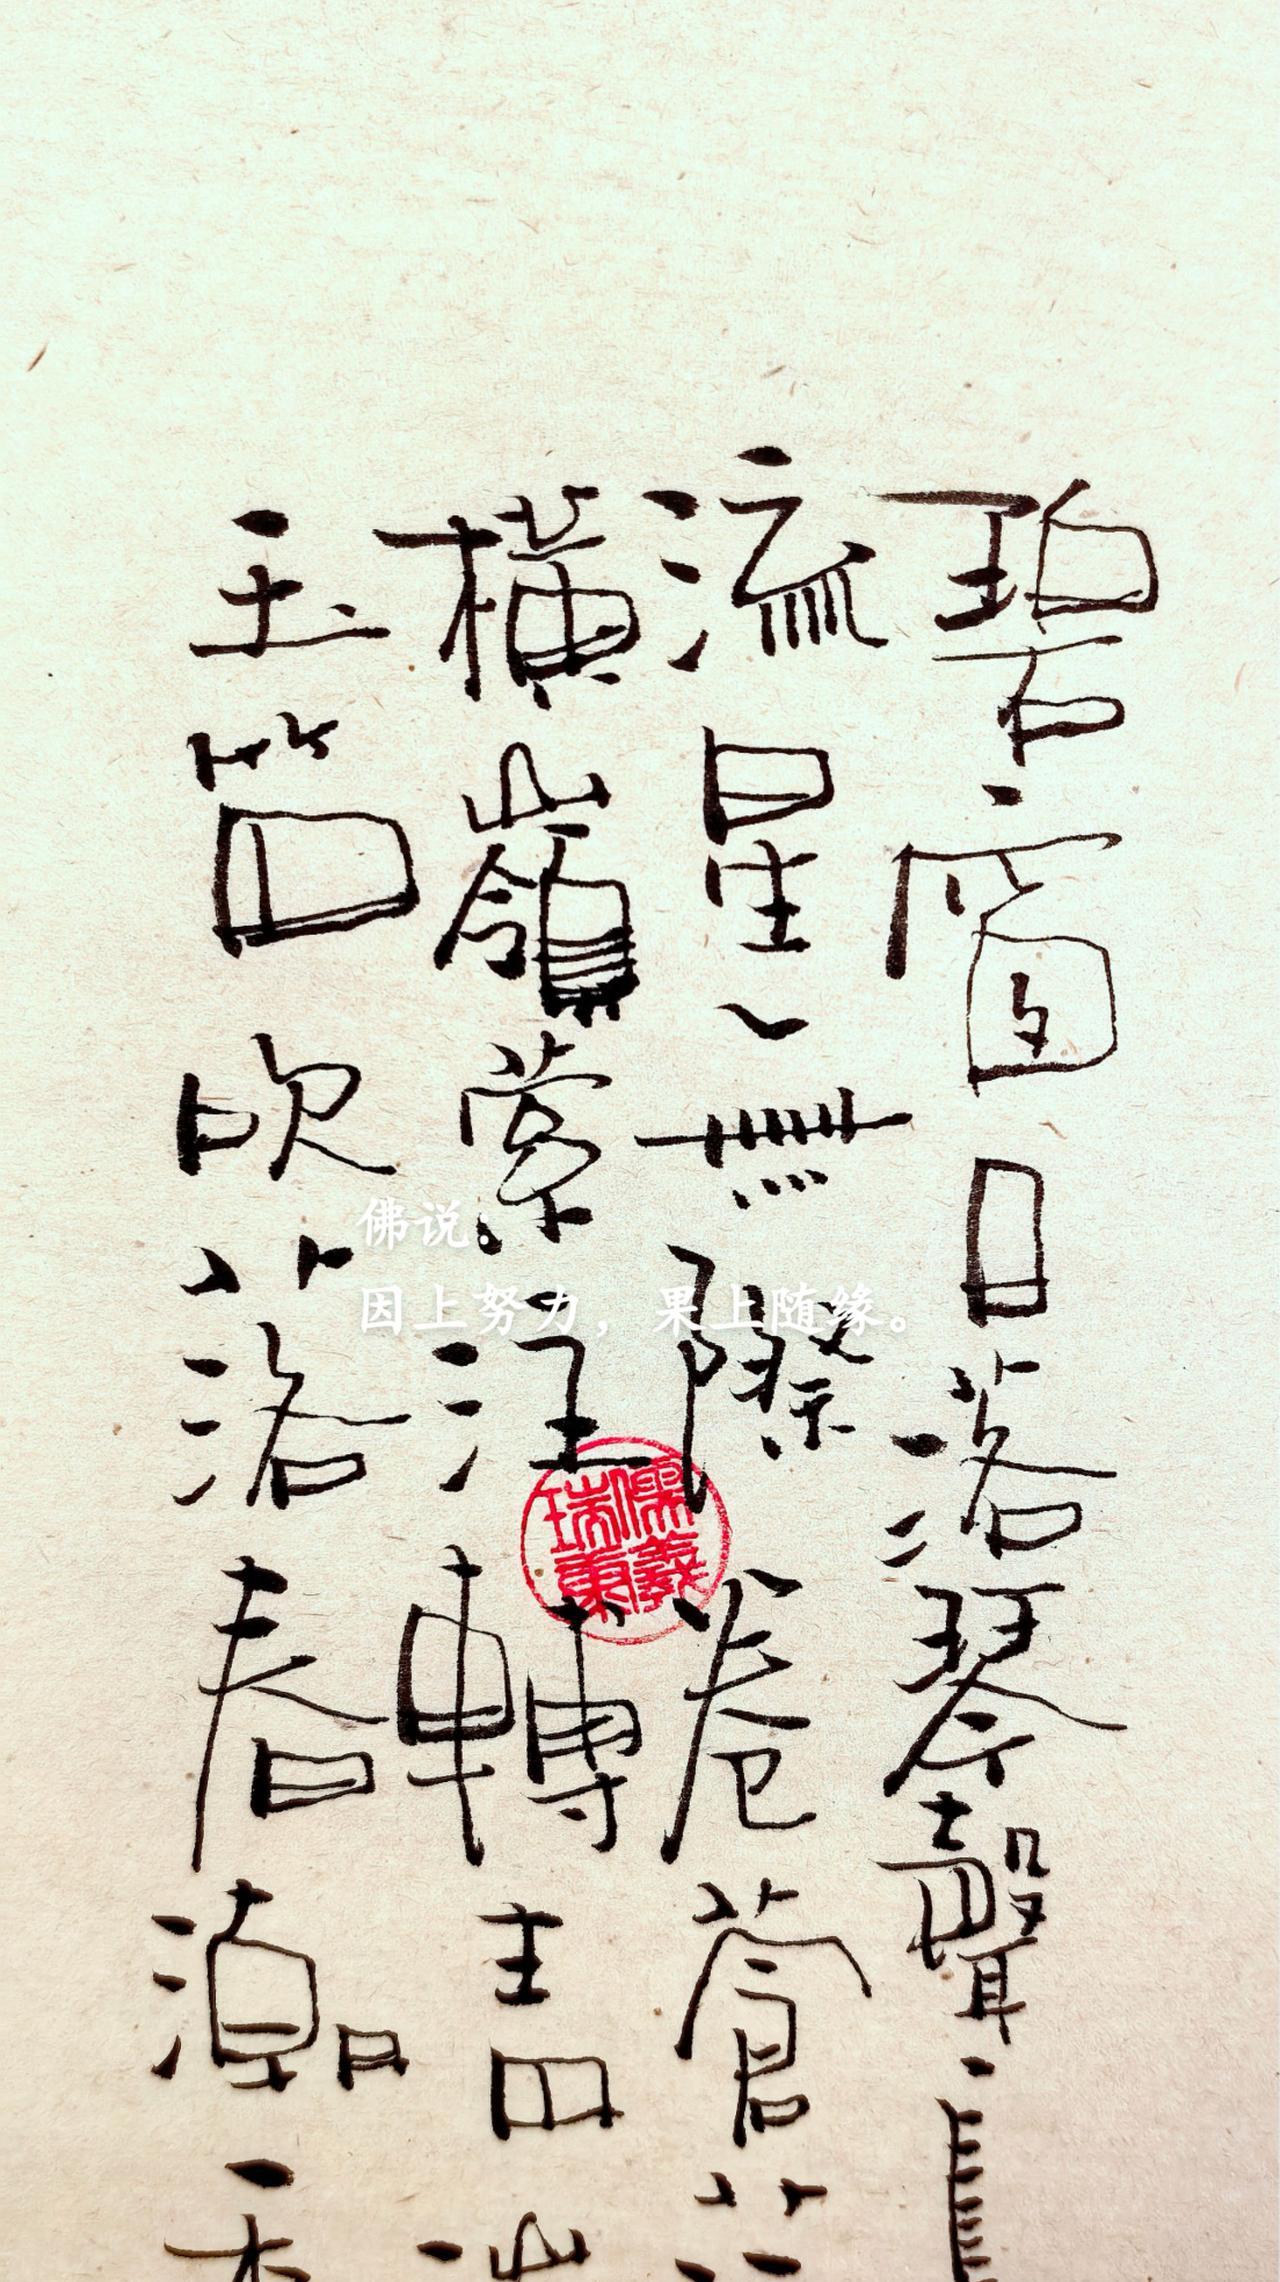 碧窗日落琴聲長
流星一無際卷蒼
橫嶺縈汪轉青
玉笛吹落春
佛说。
因上努力，果上随缘。
儒義
瑞東